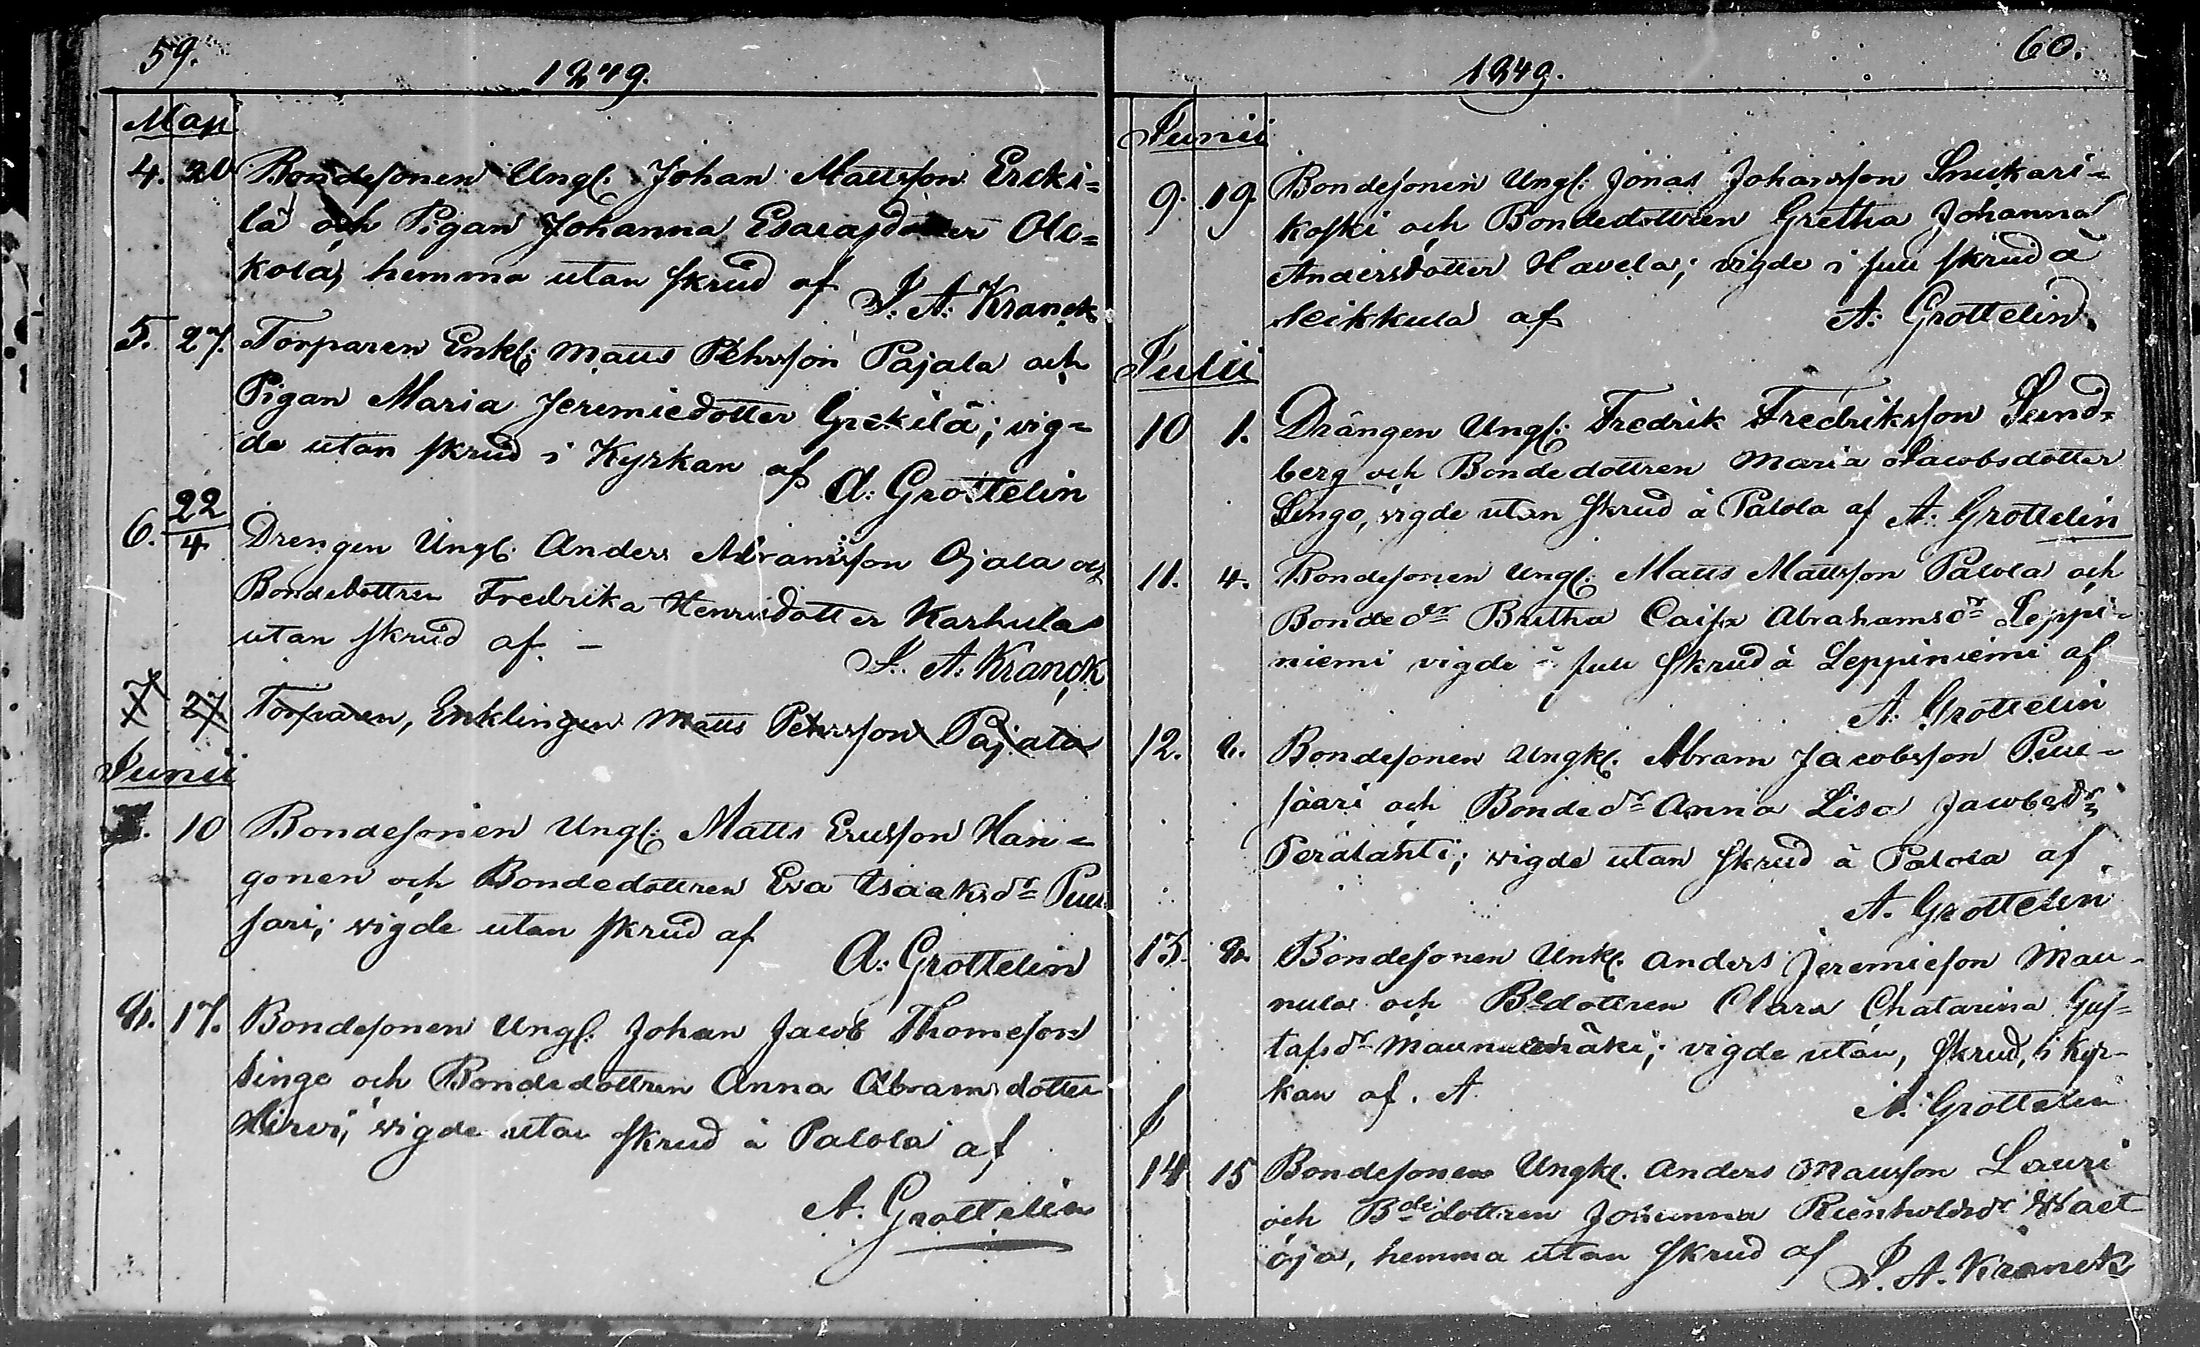 59.
1849.
Maji
4. 20 Bondesonen Ungl. Johan Mattsson Ercki=
lä och Pigan Johanna Esaiasdotter Ole=
kola, hemma utan skrud af
J. A. Kranck
5. 27. Torparen Enkl: Matts Pehrsson Pajala och
Pigan Maria Jeremiedotter Grekilä; vig=
de utan skrud i Kyrkan af
A: Grottelin
6. 22/4 Drengen Ungl. Anders Abramsson Ojala och
Bondedottren Fredrika Henricsdotter Karhula
utan skrud af. –
J. A: Kranck
7 27. Torparen, Enklingen Matts Pehrsson Pajala
Junii
7. 10 Bondesonen Ungl: Matts Ericsson Han=
gonen och Bondedottren Eva Isaaksdr Puu
sari; vigde utan skrud af
A: Grottelin
8. 17. Bondesonen Ungl: Johan Jacob Thomeson
Singo och Bondedottren Anna Abramsdotter
Hirvi; vigde utan skrud å Palola af
A. Grottelin
60.
1849.
Junii
9. 19. Bondesonen Ungl: Jonas Johansson Snickari=
koski och Bondedottren Gretha Johanna
Andersdotter Havela; vigde i full skrud å
Neikkula af
A: Grottelin.
Julii
10 1. Drängen Ungl: Fredrik Fredriksson Sund=
berg och Bondedottren Maria Jacobsdotter
Lingo, vigde utan skrud å Palola af A: Grottelin
11. 4. Bondesonen Ungl: Matts Mattsson Palola och
Bondedr Britha Caisa Abrahamsdr Leppi=
niemi vigde i full skrud å Leppiniemi af
A. Grottelin
12. 8. Bondesonen Ungkl. Abram Jacobsson Puu=
saari och Bondedr Anna Lisa Jacobsdr
Perälahti; vigde utan skrud å Palola af
A. Grottelin
13. 8. Bondesonen Unkl. Anders Jeremieson Mau-
nula och Bdedottren Clara Chatarina Gus=
tafsdr Maunulamäki; vigde utan, skrud, i Kyr-
kan af. A
A. Grottelin
14 15 Bondesonen Ungkl. Anders Mattsson Lauri
och Bdedottren Johanna Rienholdsdr
oja, hemma utan skrud af
J. A. Kranck